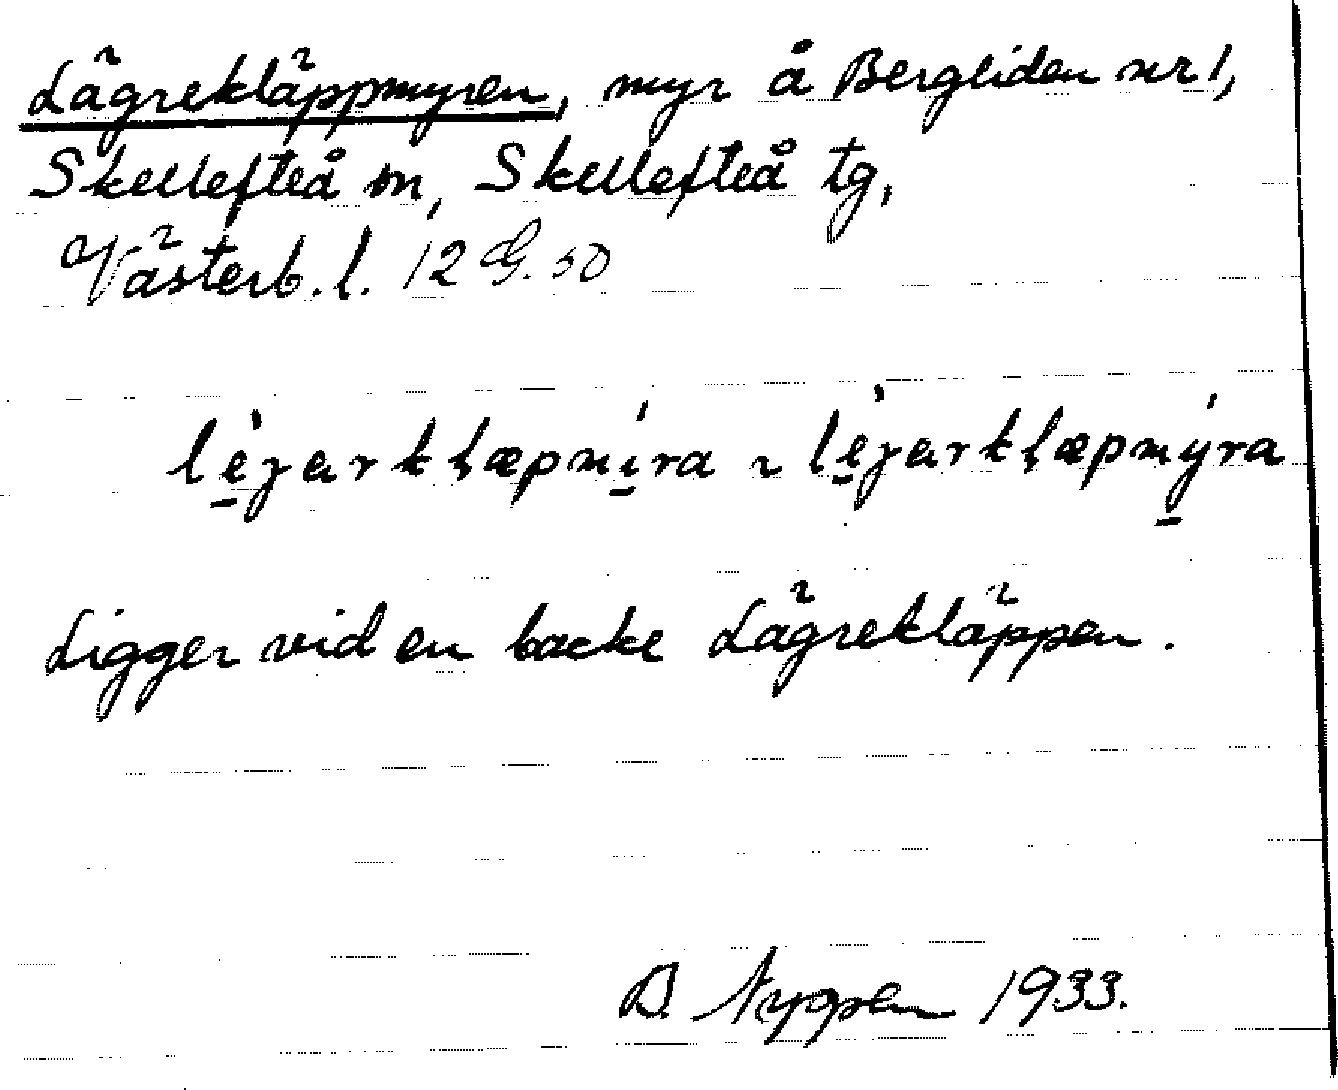 Lägrekläppmyren, myr å Bergliden nr 1,
Skellefteå sn, Skellefteå tg,
Västerb. l. 12 G. 50
lė̱ɣarkłæpmí̱ra ~ lė̱ɣarkłæpmý̱ra
Ligger vid en backe Lägrekläppen.
1933.